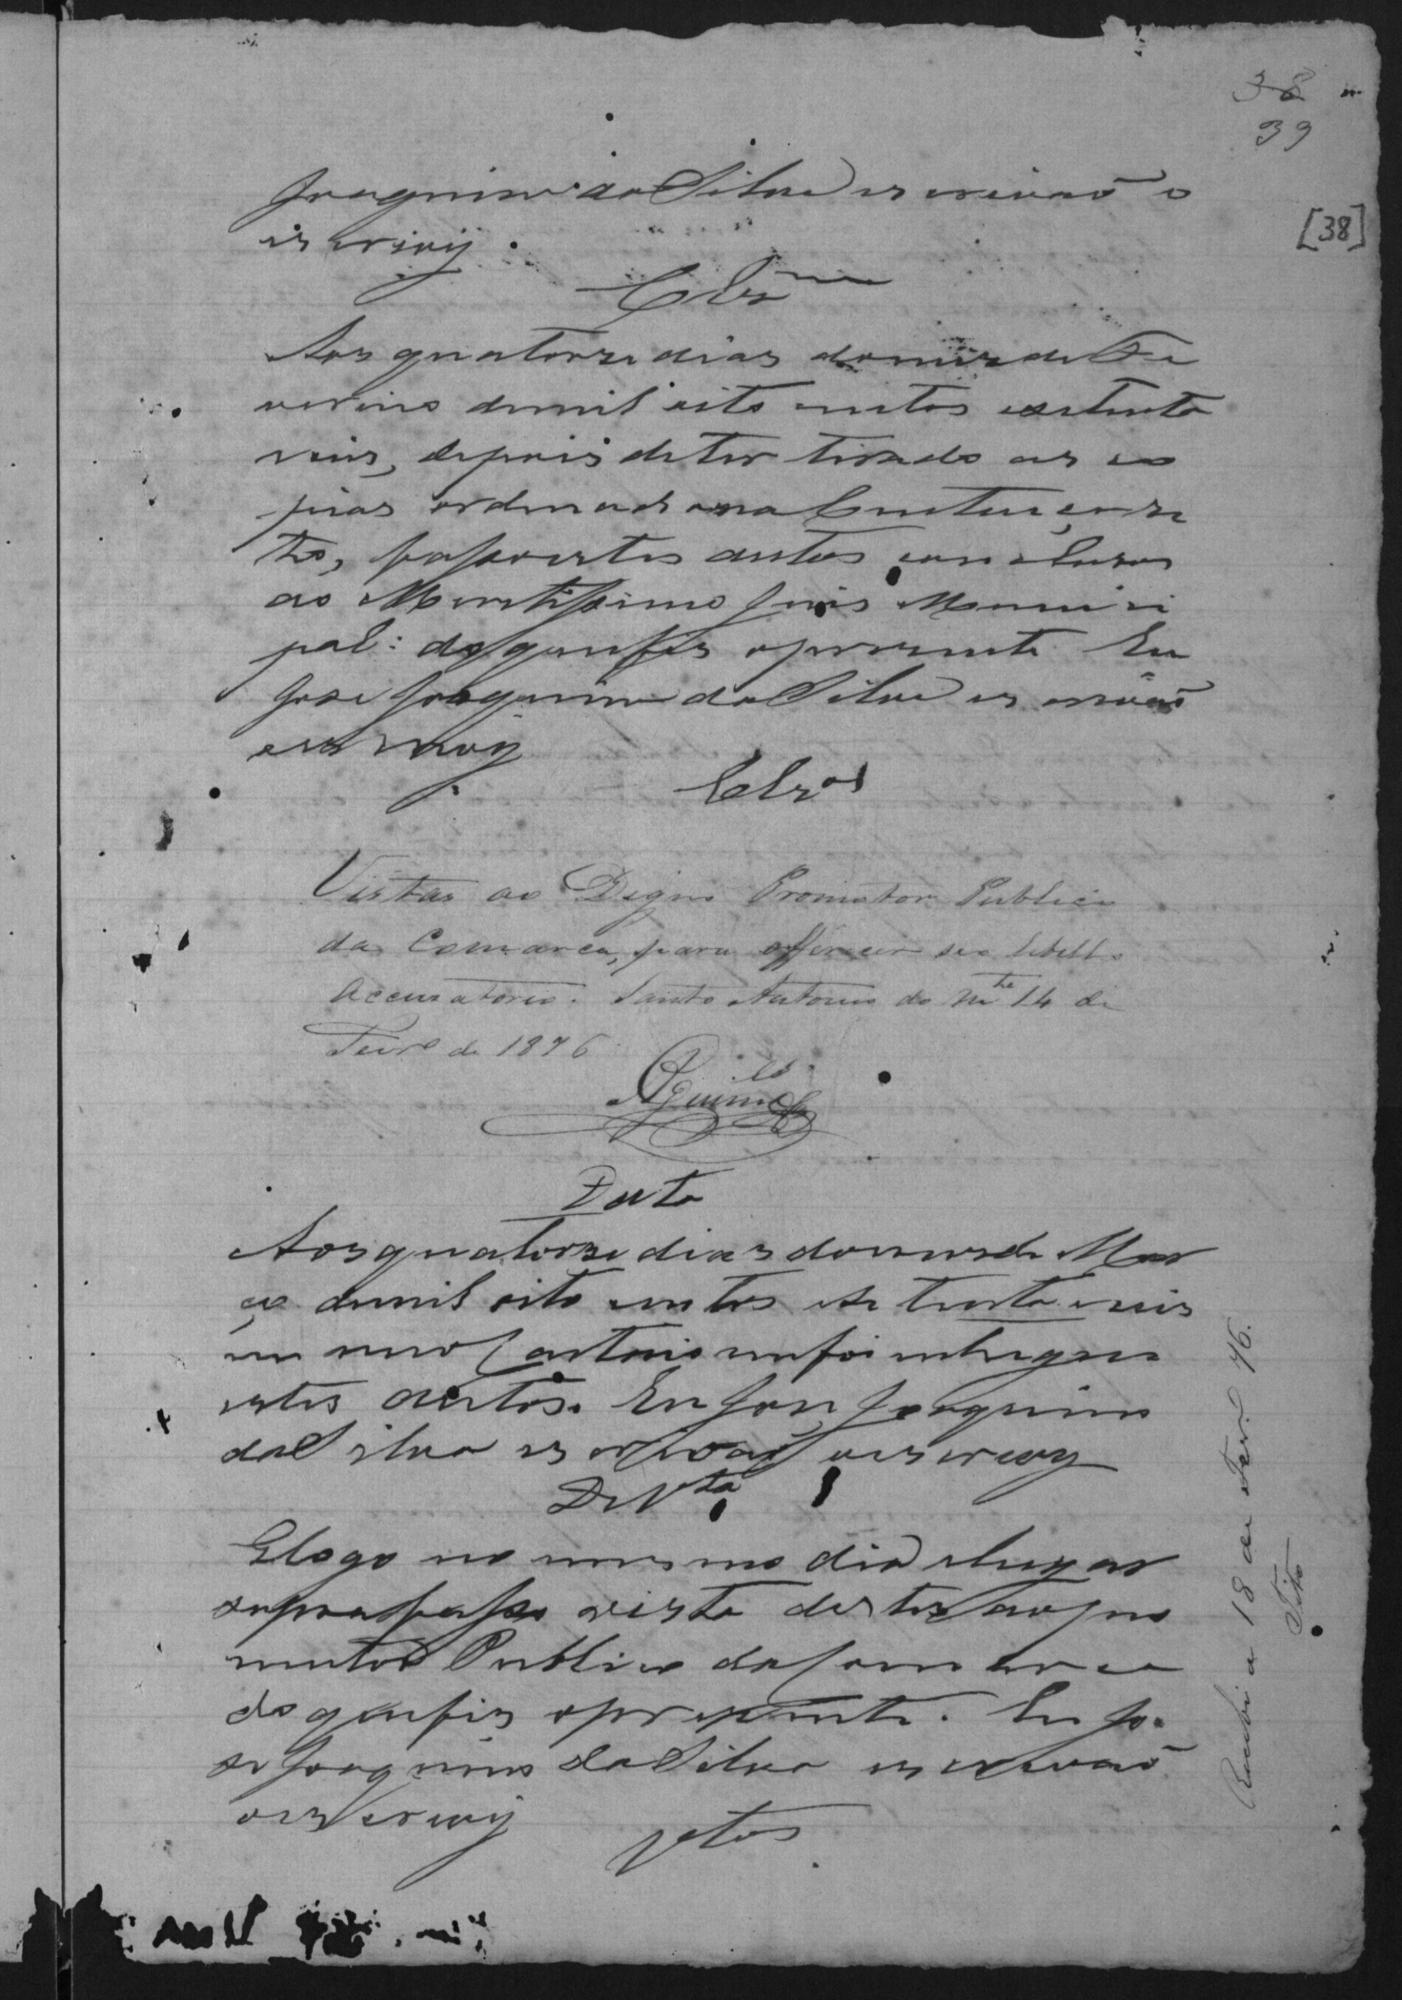 38
39
[38]
Joaquim da Silva escrivaõ o
escrivij.
Clsm
Aos quatorse dias do mes de Fe
vereiro de mil oito centos e setenta
e seis, depois de ter tirado as co
pias ordenadas na Sentença re
tro, faço estes autos conclusos
ao Meretissimo Juis Munici
pal: do que fis o presente Eu
José Joaquim da Silva escrivaõ
escrivij
Clsos
Vistas ao Digno Promotor Publico
da Comarca, para offerecer seo libello
accusatorio. Santo Antonio do Mte 14 de
Fevro de 1876
Data
Aos quatorse dias do mes de Mar
ço de mil oito centos e setenta e seis
em meo Cartorio me foi entregue
estes autos. Eu José Joaquim
da Silva escrivaõ o escrevy
De Vta
E logo no mesmo dia e lugar
supra faço vista destes ao pro
motor Publico da Comarca
do que fis o presente. Eu Jo
se Joaquim da Silva escrivaõ
o escrevij
Vtas
Recebi a 18 de Fevr. 76.
Tito